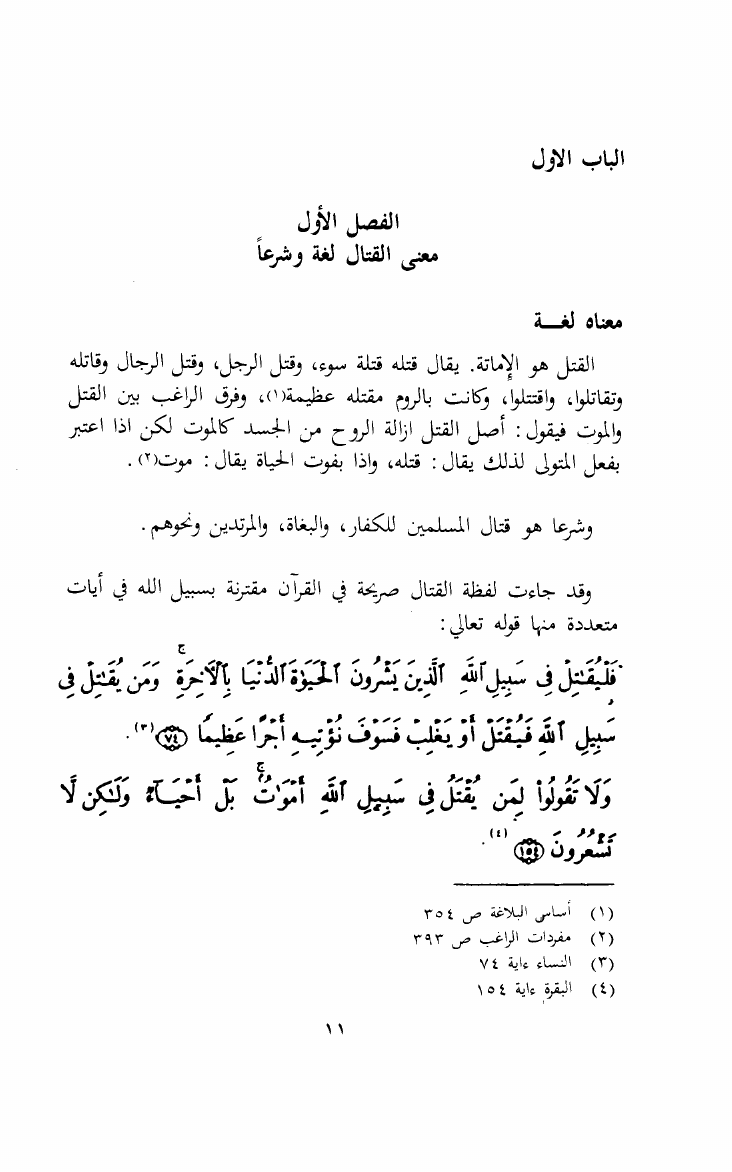 الباب الاول
الفصل الأول
معنى القتال لغة وشرعاً
معناه لغـــة
القتل هو الإماتة. يقال قتله قتلة سوء، وقتل الرجل، وقتل الرجال وقاتله
وتقاتلوا، واقتتلوا، وكانت بالروم مقتله عظيمة(١)، وفرق الراغب بين القتل
والموت فيقول : أصل القتل ازالة الروح من الجسد كالموت لكن اذا اعتبر
بفعل المتولى لذلك يقال : قتله، واذا بفوت الحياة يقال : موت(٢) .
وشرعا هو قتال المسلمين للكفار، والبغاة، والمرتدين ونحوهم .
وقد جاءت لفظة القتال صريحة في القرآن مقترنة بسبيل الله في أيات
متعددة منها قوله تعالي :
فَلْيُقَـٰتِلْ فِى سَبِيلِ ٱللَّهِ ٱلَّذِينَ يَشْرُونَ ٱلْحَيَوٰةَ ٱلدُّنْيَا بِٱلْآخِرَةِ ۚ وَمَن يُقَـٰتِلْ فِى
سَبِيلِ ٱللَّهِ فَيُقْتَلْ أَوْ يَغْلِبْ فَسَوْفَ نُؤْتِيهِ أَجْرًا عَظِيمًا ﴿٧٤﴾ (٣) .
وَلَا تَقُولُوا۟ لِمَن يُقْتَلُ فِى سَبِيلِ ٱللَّهِ أَمْوَٰتٌۢ ۚ بَلْ أَحْيَآءٌ وَلَـٰكِن لَّا
تَشْعُرُونَ ﴿١٥٤﴾ (٤) .
(١) أساس البلاغة ص ٣٥٤
(٢) مفردات الراغب ص ٣٩٣
(٣) النساء ءاية ٧٤
(٤) البقرة ءاية ١٥٤
١١